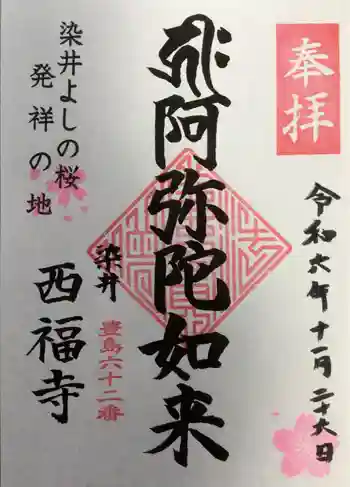 奉拝
令和六年十一月二十六日
阿弥陀如来
染井よしの桜
発祥の地
染井
西福寺
豊島六十二番